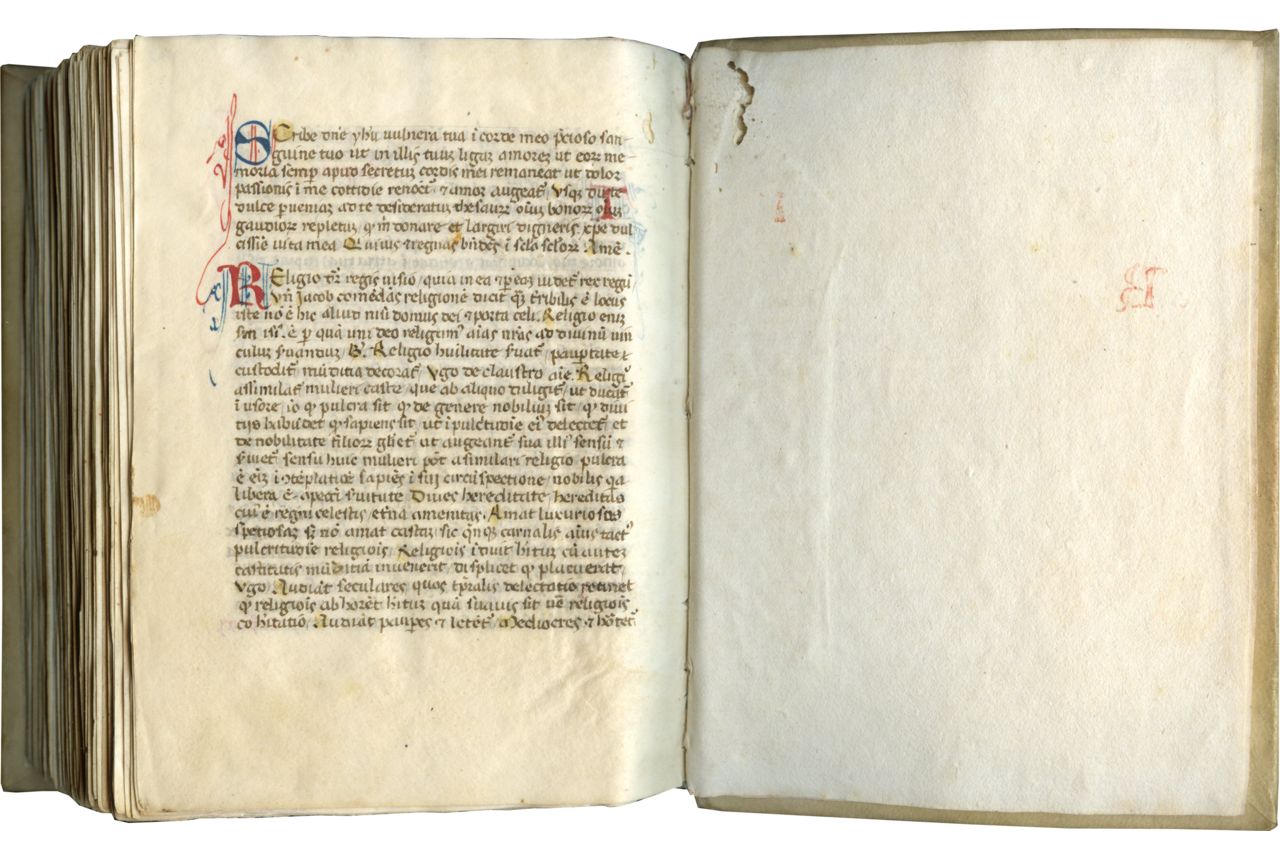 Scribe dne yhu vulnera tua i corde meo p̄cioso san-
guine tuo ut in illis tuuz liguz amorez ut eorꝝ me-
moria semp̄ apud secretuz cordis mei remaneat ut dolor
passionis i me cottidie renoēt᷑ ⁊ amor augeat᷑ usqꝫ
dulce p̄ueniaz ad te desideratuz thesaurꝫ oīuz bonorꝝ
gaudiorꝝ repletuz, q̄ m donare et largiri digneris xp̄e dul
cissīe vita mea Qui uiuis ⁊ regnas i sc̄la sc̄lorꝝ Amē.
Religio regis uisio, quia in ea ⁊ p̄ eaz uidet᷑ rex regū
Vn̄ Jacob comēdās religionē dicit q̄ tribilis ē locus
iste nō ē hic aliud nisi domus dei ⁊ porta celi. Religio eniz
ē p quā uni deo religam᷑ aīas nr̄as ad diuinū uin
culuz Religio huīlitate s̄uat᷑, paup̄tate
custodit᷑ mūditia decorat᷑, Ugo de claustro aīe. Religi
assimilat᷑ mulieri caste, que ab aliquo diligit᷑, ut ducat᷑
i uxorē, q̄ pulcra sit q̄ de genere nobiliuz sit, q̄ diui
tijs q̄ sapiens sit, ut i pulc᷑tudīe ei᷑ delectet᷑ et
de nobilitate ut augeant᷑ sua sensū ⁊
sensu huic mulieri pōt asimilari religio pulcra
ē i ꝯtēplatiōe sapiēs i sui circūspectione, nobilis qa
libera ē s̄uitute Diues hereditate, hereditas
cui᷑ ē regni celestis, et̄na amenitas. Amat luxuriosus
spetiosaz sꝫ nō amat castaz, sic carnalis
pulcritudīē religiois, Religiois hituz cū autez
castitatis mūditiā inuenerit, displicet q̄ placuerat,
Ugo, Audiāt seculares quos tp̄ralis delectatio retinet
q̄ religiois abhorēt hituz quā suauis sit religiois
cohitatio, Audiāt paup̄es ⁊ letēt᷑, Mediocres ⁊